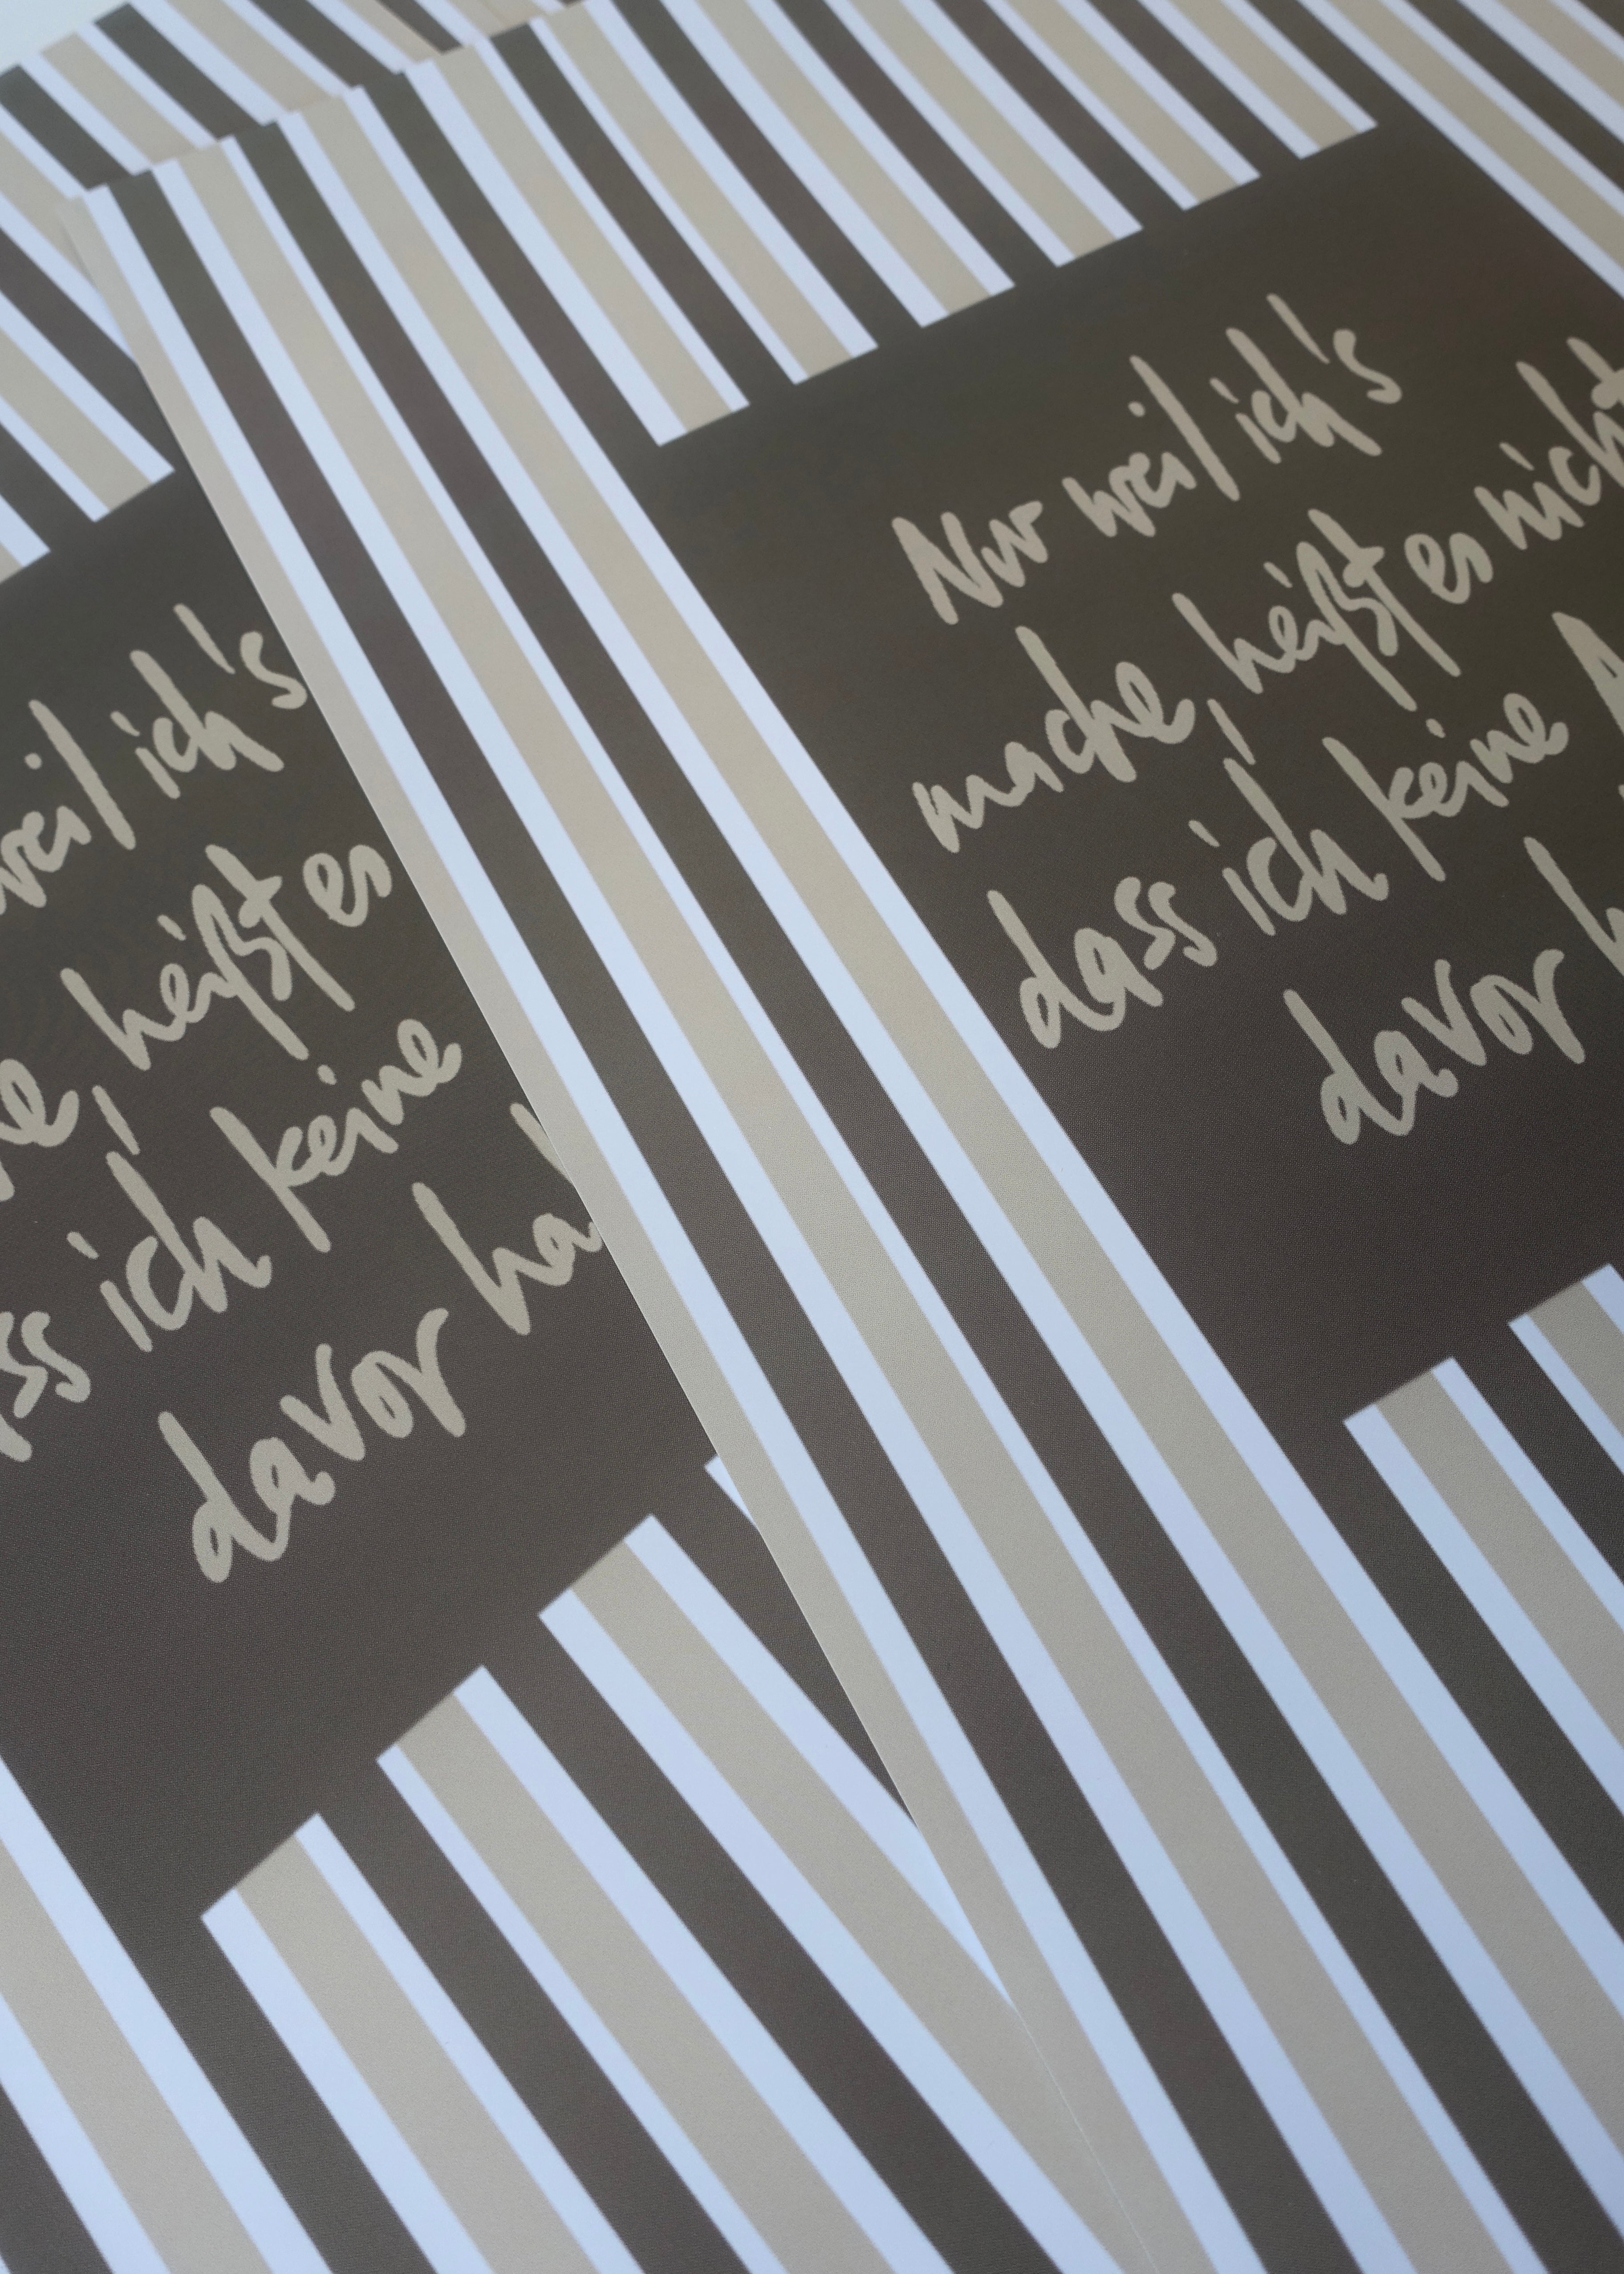 Nur weil ich's
mache, heißt es nicht,
dass ich keine
davor
weil ich's
heißt es
ich keine
davor